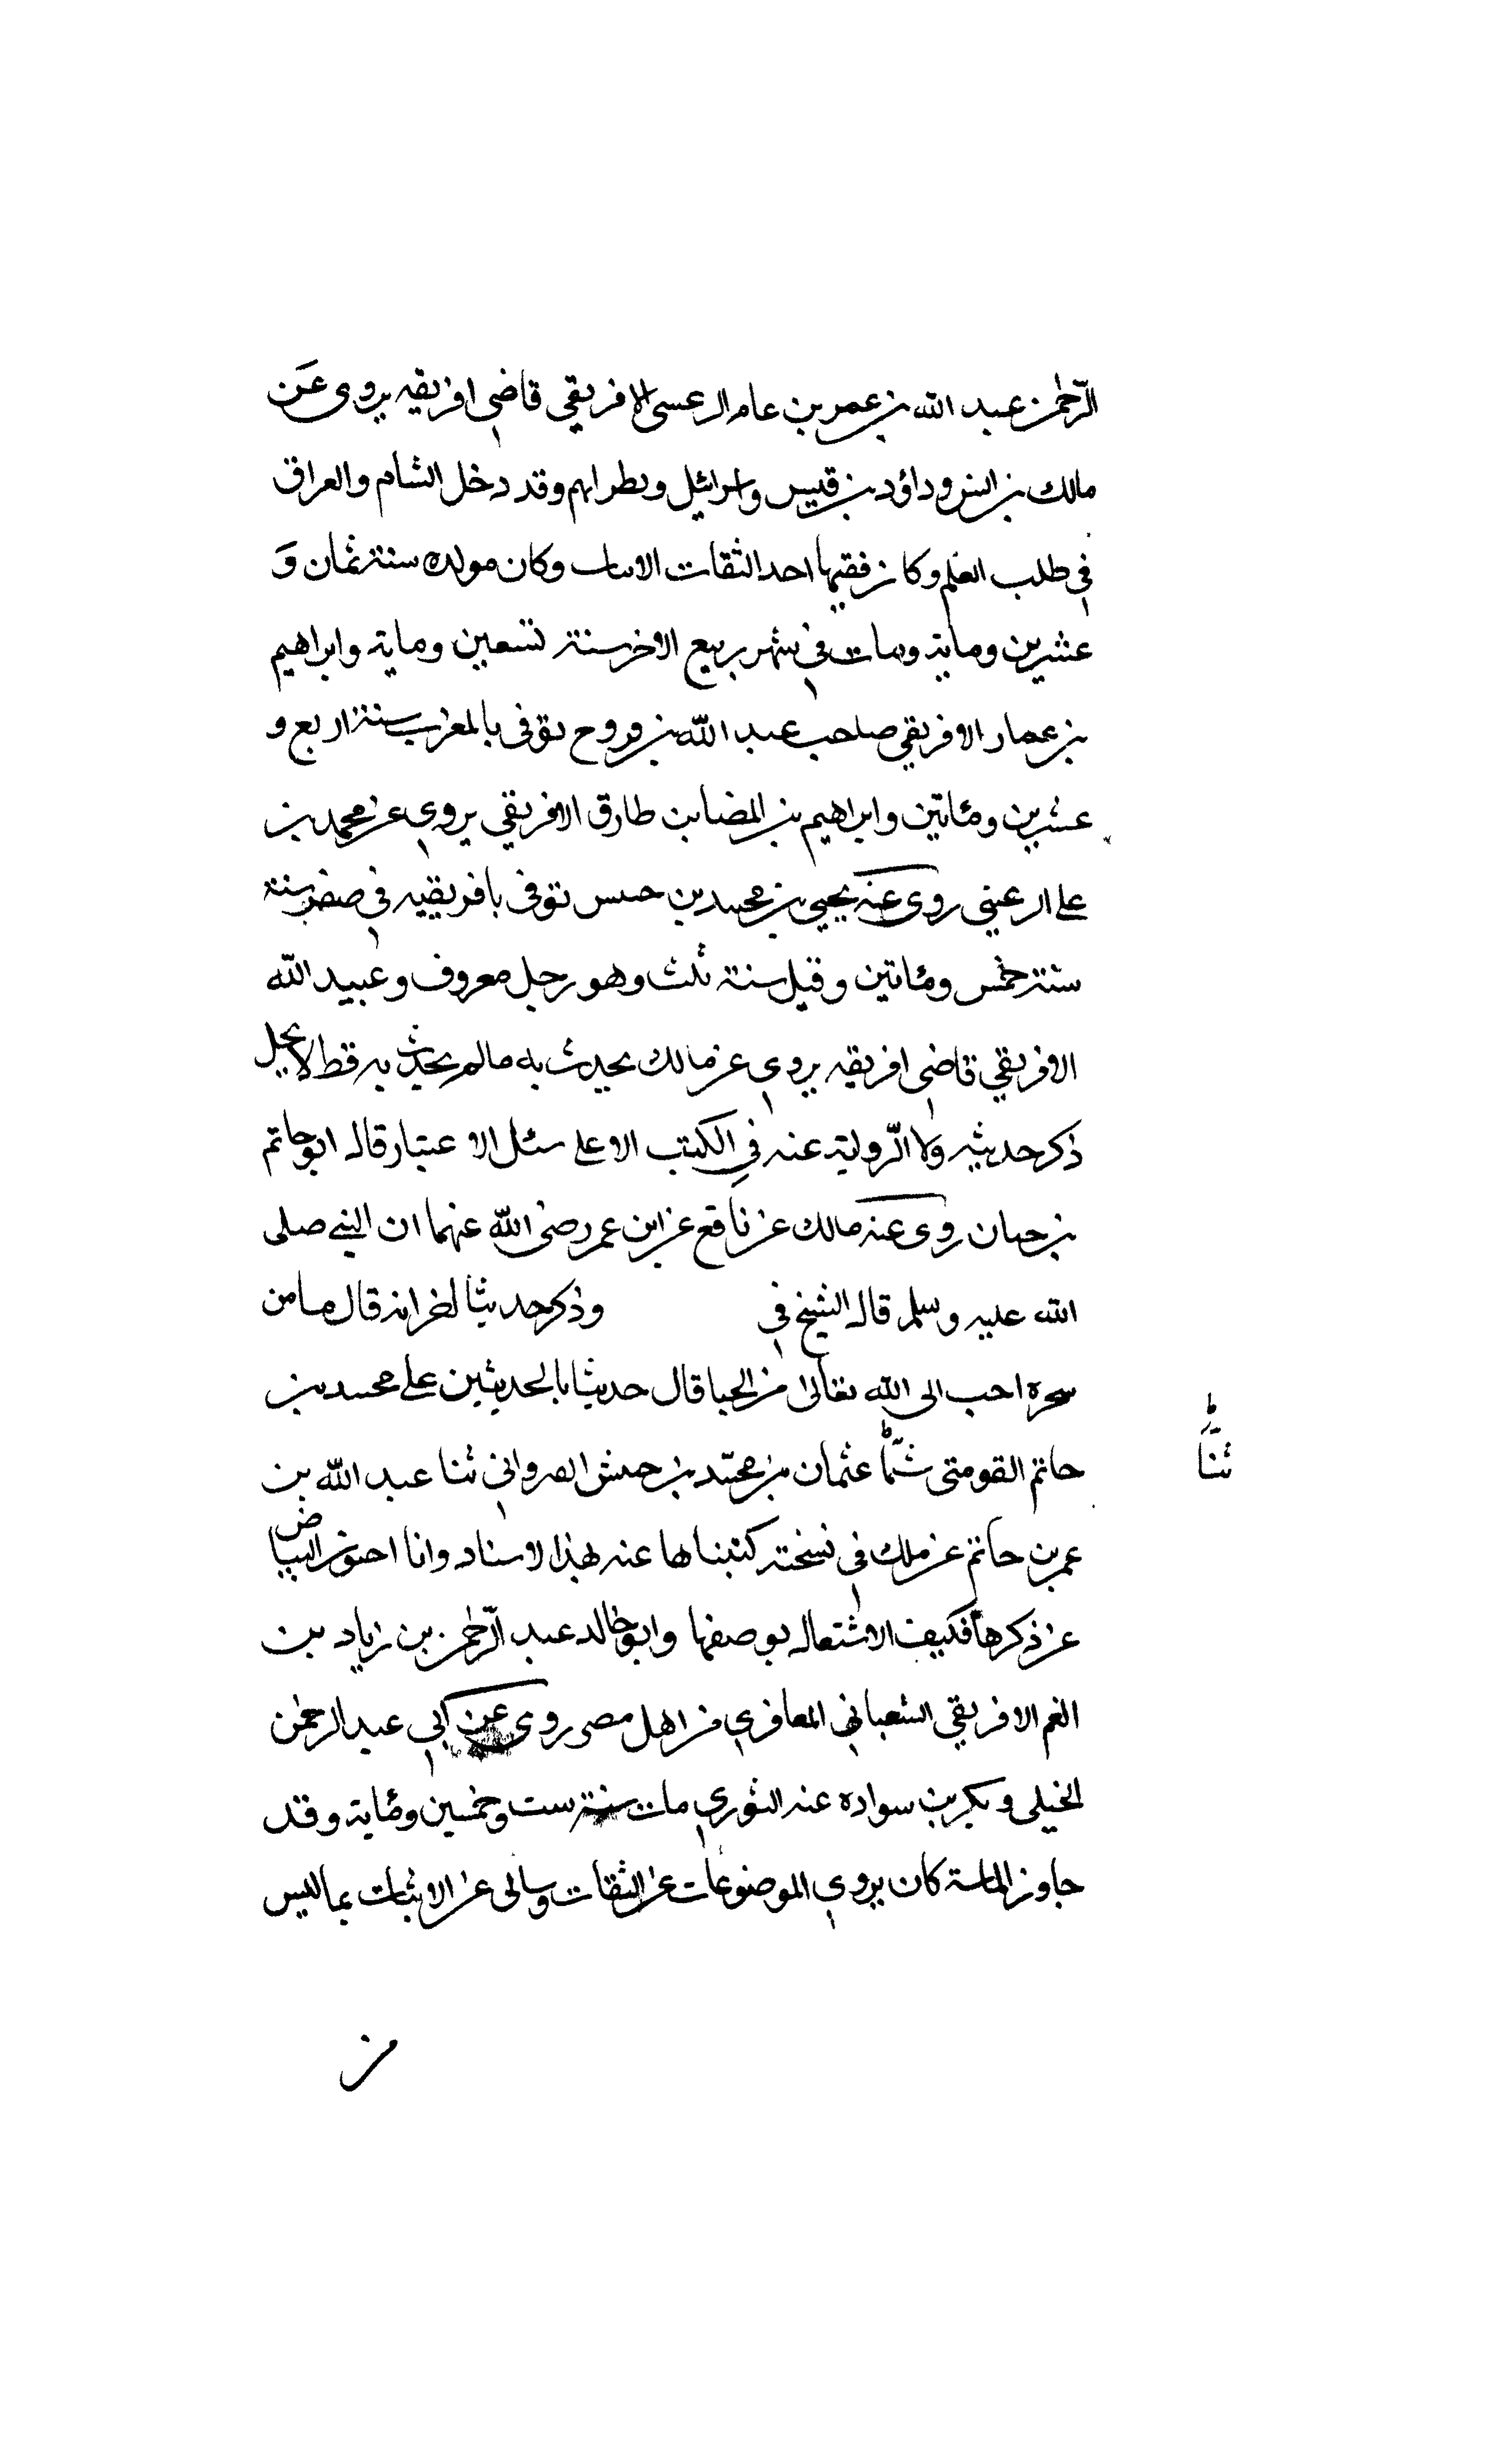 الرّحمٰن عبد الله بن عمر بن عامر الرعسى الافريقي قاضي افريقيه يروى عَن
مالك بن انس وداؤد بن قيس واسرائيل ونطرائهم وقد دخل الشام والعراق
في طلب العلم وكان فقيها احد الثقات الاثبات وكان مولده سنة ثمان وَ
عشرين وماية ومات في شهر ربيع الاخر سنة تسعين وماية وابراهيم
بن عمار الافريقي صاحب عبد الله بن فروح توفى بالمغرب سنة اربع و
عشرين ومئاتين وابراهيم بن المضا بن طارق الافريقي يروي عن محمد بن
على الرعيني روى عنه يحيى بن محمد بن حسس توفى بافريقيه في صفر سنة
سنة خمس ومئاتين وقيل سنة ثلث وهو رجل معروف وعبيد الله
الافريقي قاضي افريقيه يروي عن مالك يحدث به مالم يحدث به قط لا يحل
ذكر حديثه ولا الرّواية عنه في الكتب الا على سئل الاعتبار قاله ابو حاتم
بن حبان روى عنه مالك عن نافع عن ابن عمر رضى الله عنهما ان النبي صلى
الله عليه وسلم قال الشيخ في وذكر حديثا اخر انه قال ما من
سحرة احب الى الله تعالى من الحبا قال حديثا بالحديثين على محمد بن
حاتم القومتى ثنّا عثمان بن محمّد بن حبيش الصرواني ثنا عبد الله بن
عمر بن حاتم عن ملك في نسخة كتبناها عنه بهذا الاسناد وانا اصون البياض
عن ذكرها فكيف الاشتغال بوصفها وابو خالد عبد الرّحمٰن بن زياد بن
انعم الافريقي الشعباني المعافري من اهل مصر روى عن ابي عبد الرحمٰن
الحبلى وبكر بن سواده عنه الثوري مات سنة ست وخمسين ومئاية وقد
جاوز المائة كان يروي الموضوعات عن الثقات وياتى عن الاثبات بما ليس
من
ثنَّا
ط